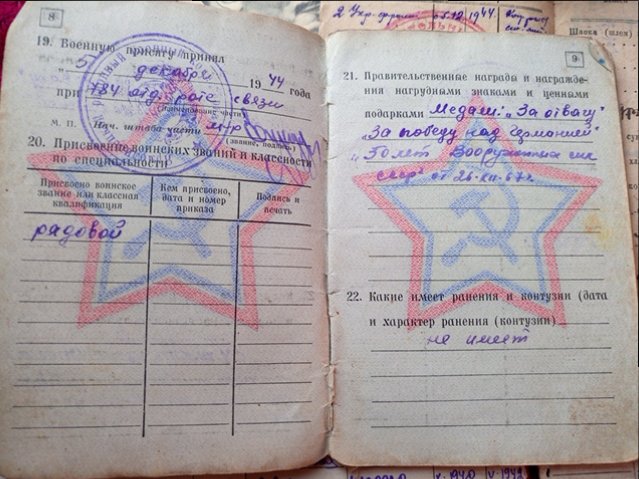 2 Укр. фронт 05.12.1944
8
19. Военную присягу принял
"5" декабря 1944 года
при 784 отд. роте связи
(наименование части)
М. П. Нач. штаба части м-р
(звание, подпись)
20. Присвоение воинских званий и классности
по специальности
Присвоено воинское
звание или классная
квалификация
Кем присвоено,
дата и номер
приказа
Подпись и
печать
рядовой
9
21. Правительственные награды и награжде-
ния нагрудными знаками и ценными
подарками Медаль: "За отвагу"
"За победу над Германией"
"50 лет Вооруженных сил
СССР" от 26-XII-67г.
22. Какие имеет ранения и контузии (дата
и характер ранения (контузии)
не имеет
Шапка (шлем)